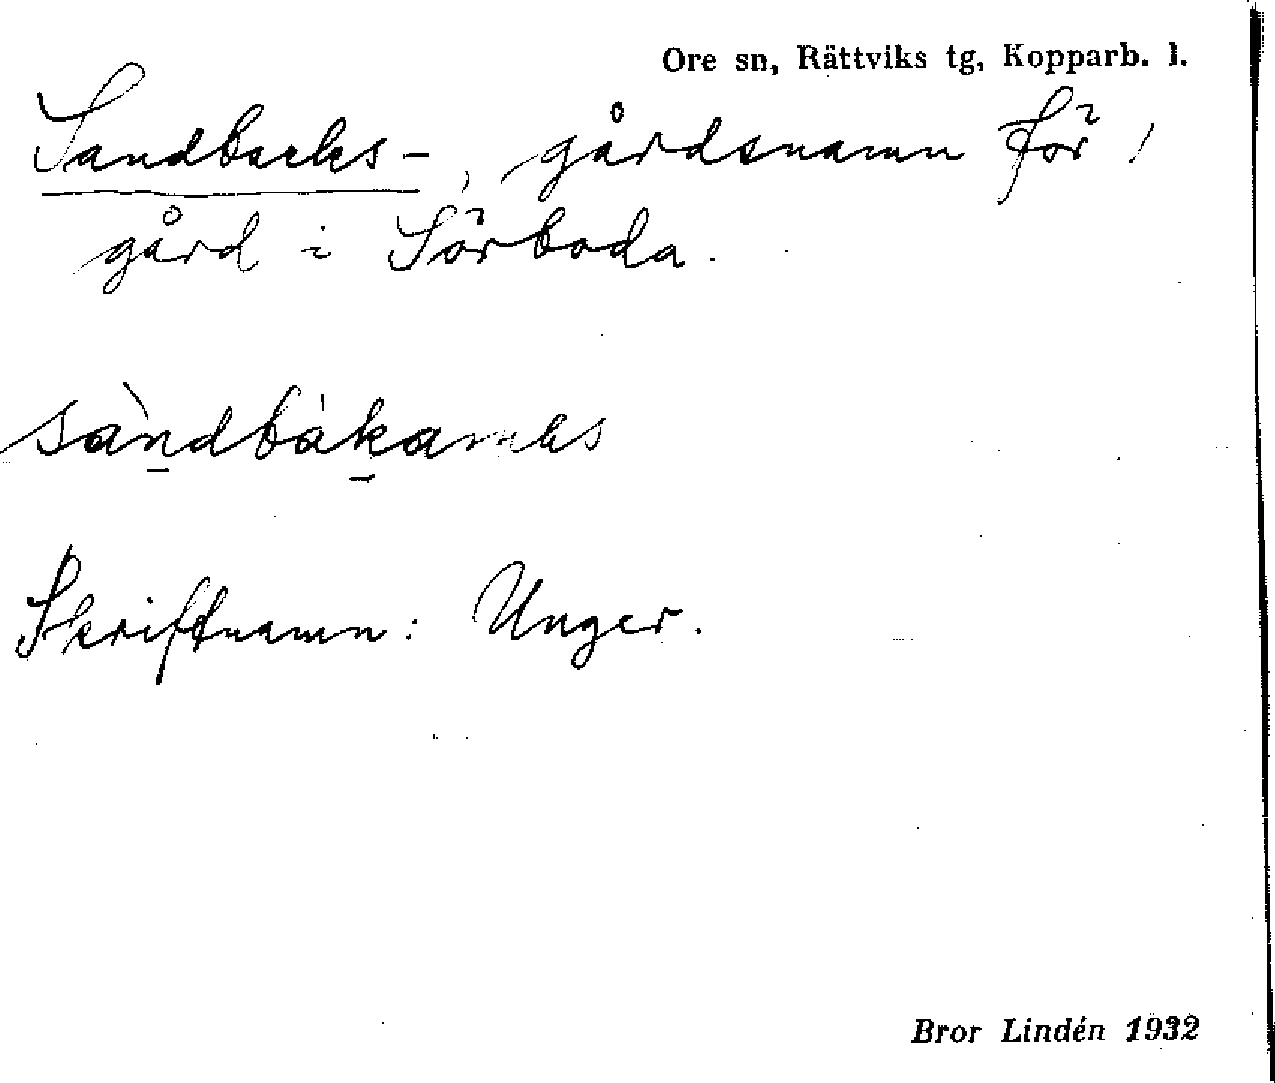 Ore sn, Rättviks tg, Kopparb. l.
Sandbacks-, gårdsnamn för 1
gård i Sörboda.
sàn̠dbàk̠a
Skriftnamn: Unger.
Bror Lindén 1932